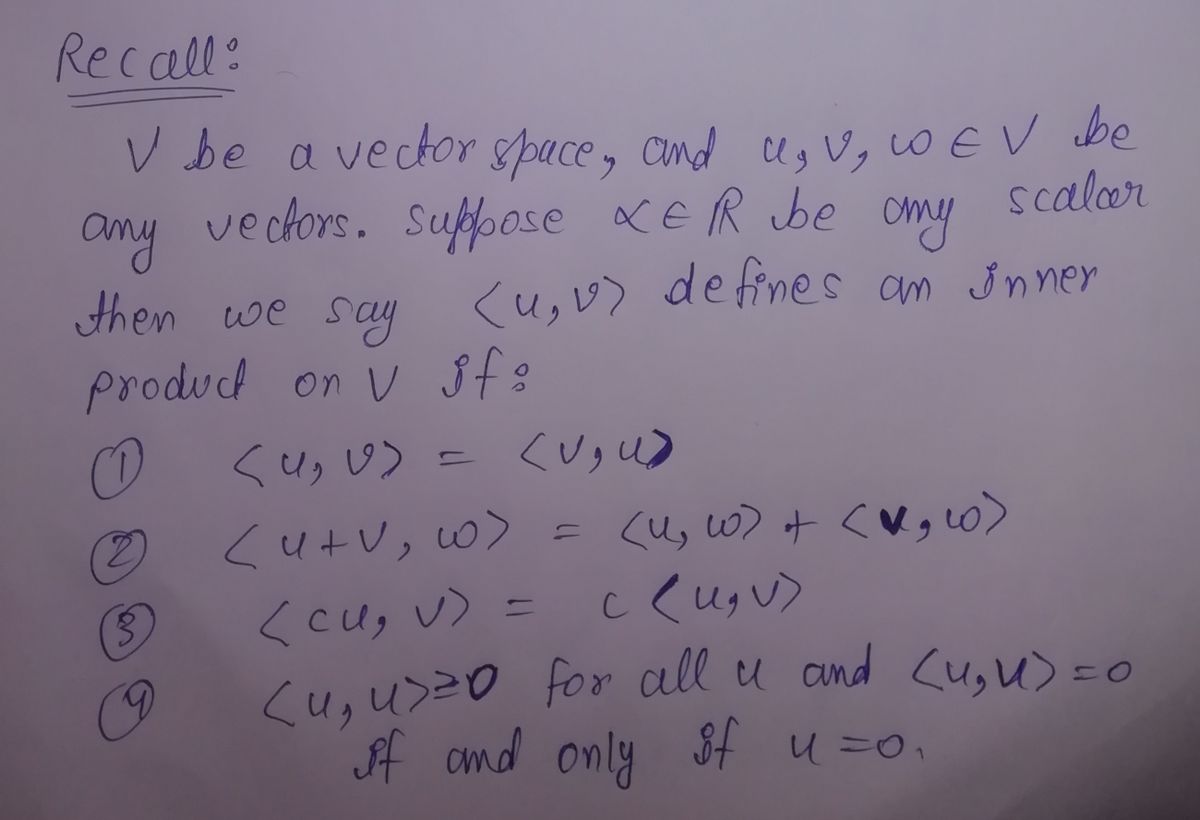 Recall:
V be a vector space, and u, v, w ∈ V be
any vectors. Suppose α ∈ ℝ be any scalar
then we say <u, v> defines an inner
product on V if:
① <u, v> = <v, u>
② <u+v, w> = <u, w> + <v, w>
③ <cu, v> = c <u, v>
④ <u, u> ≥ 0 for all u and <u, u> = 0
if and only if u = 0.